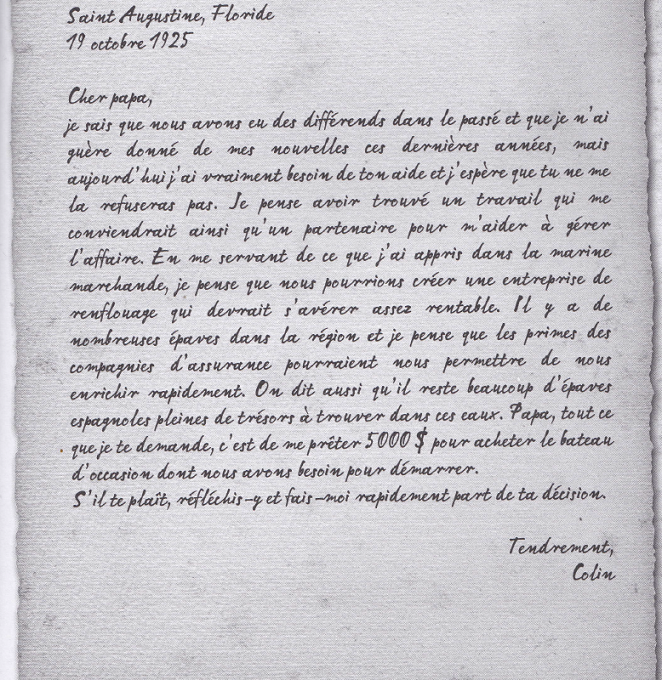 Saint Augustine, Floride
19 octobre 1925
Cher papa,
je sais que nous avons eu des différends dans le passé et que je n'ai
guère donné de mes nouvelles ces dernières années, mais
aujourd'hui j'ai vraiment besoin de ton aide et j'espère que tu ne me
la refuseras pas. Je pense avoir trouvé un travail qui me
conviendrait ainsi qu'un partenaire pour m'aider à gérer
l'affaire. En me servant de ce que j'ai appris dans la marine
marchande, je pense que nous pourrions créer une entreprise de
renflouage qui devrait s'avérer assez rentable. Il y a de
nombreuses épaves dans la région et je pense que les primes des
compagnies d'assurance pourraient nous permettre de nous
enrichir rapidement. On dit aussi qu'il reste beaucoup d'épaves
espagnoles pleines de trésors à trouver dans ces eaux. Papa, tout ce
que je te demande, c'est de me prêter 5000 $ pour acheter le bateau
d'occasion dont nous avons besoin pour démarrer.
S'il te plaît, réfléchis-y et fais-moi rapidement part de ta décision.
Tendrement,
Colin